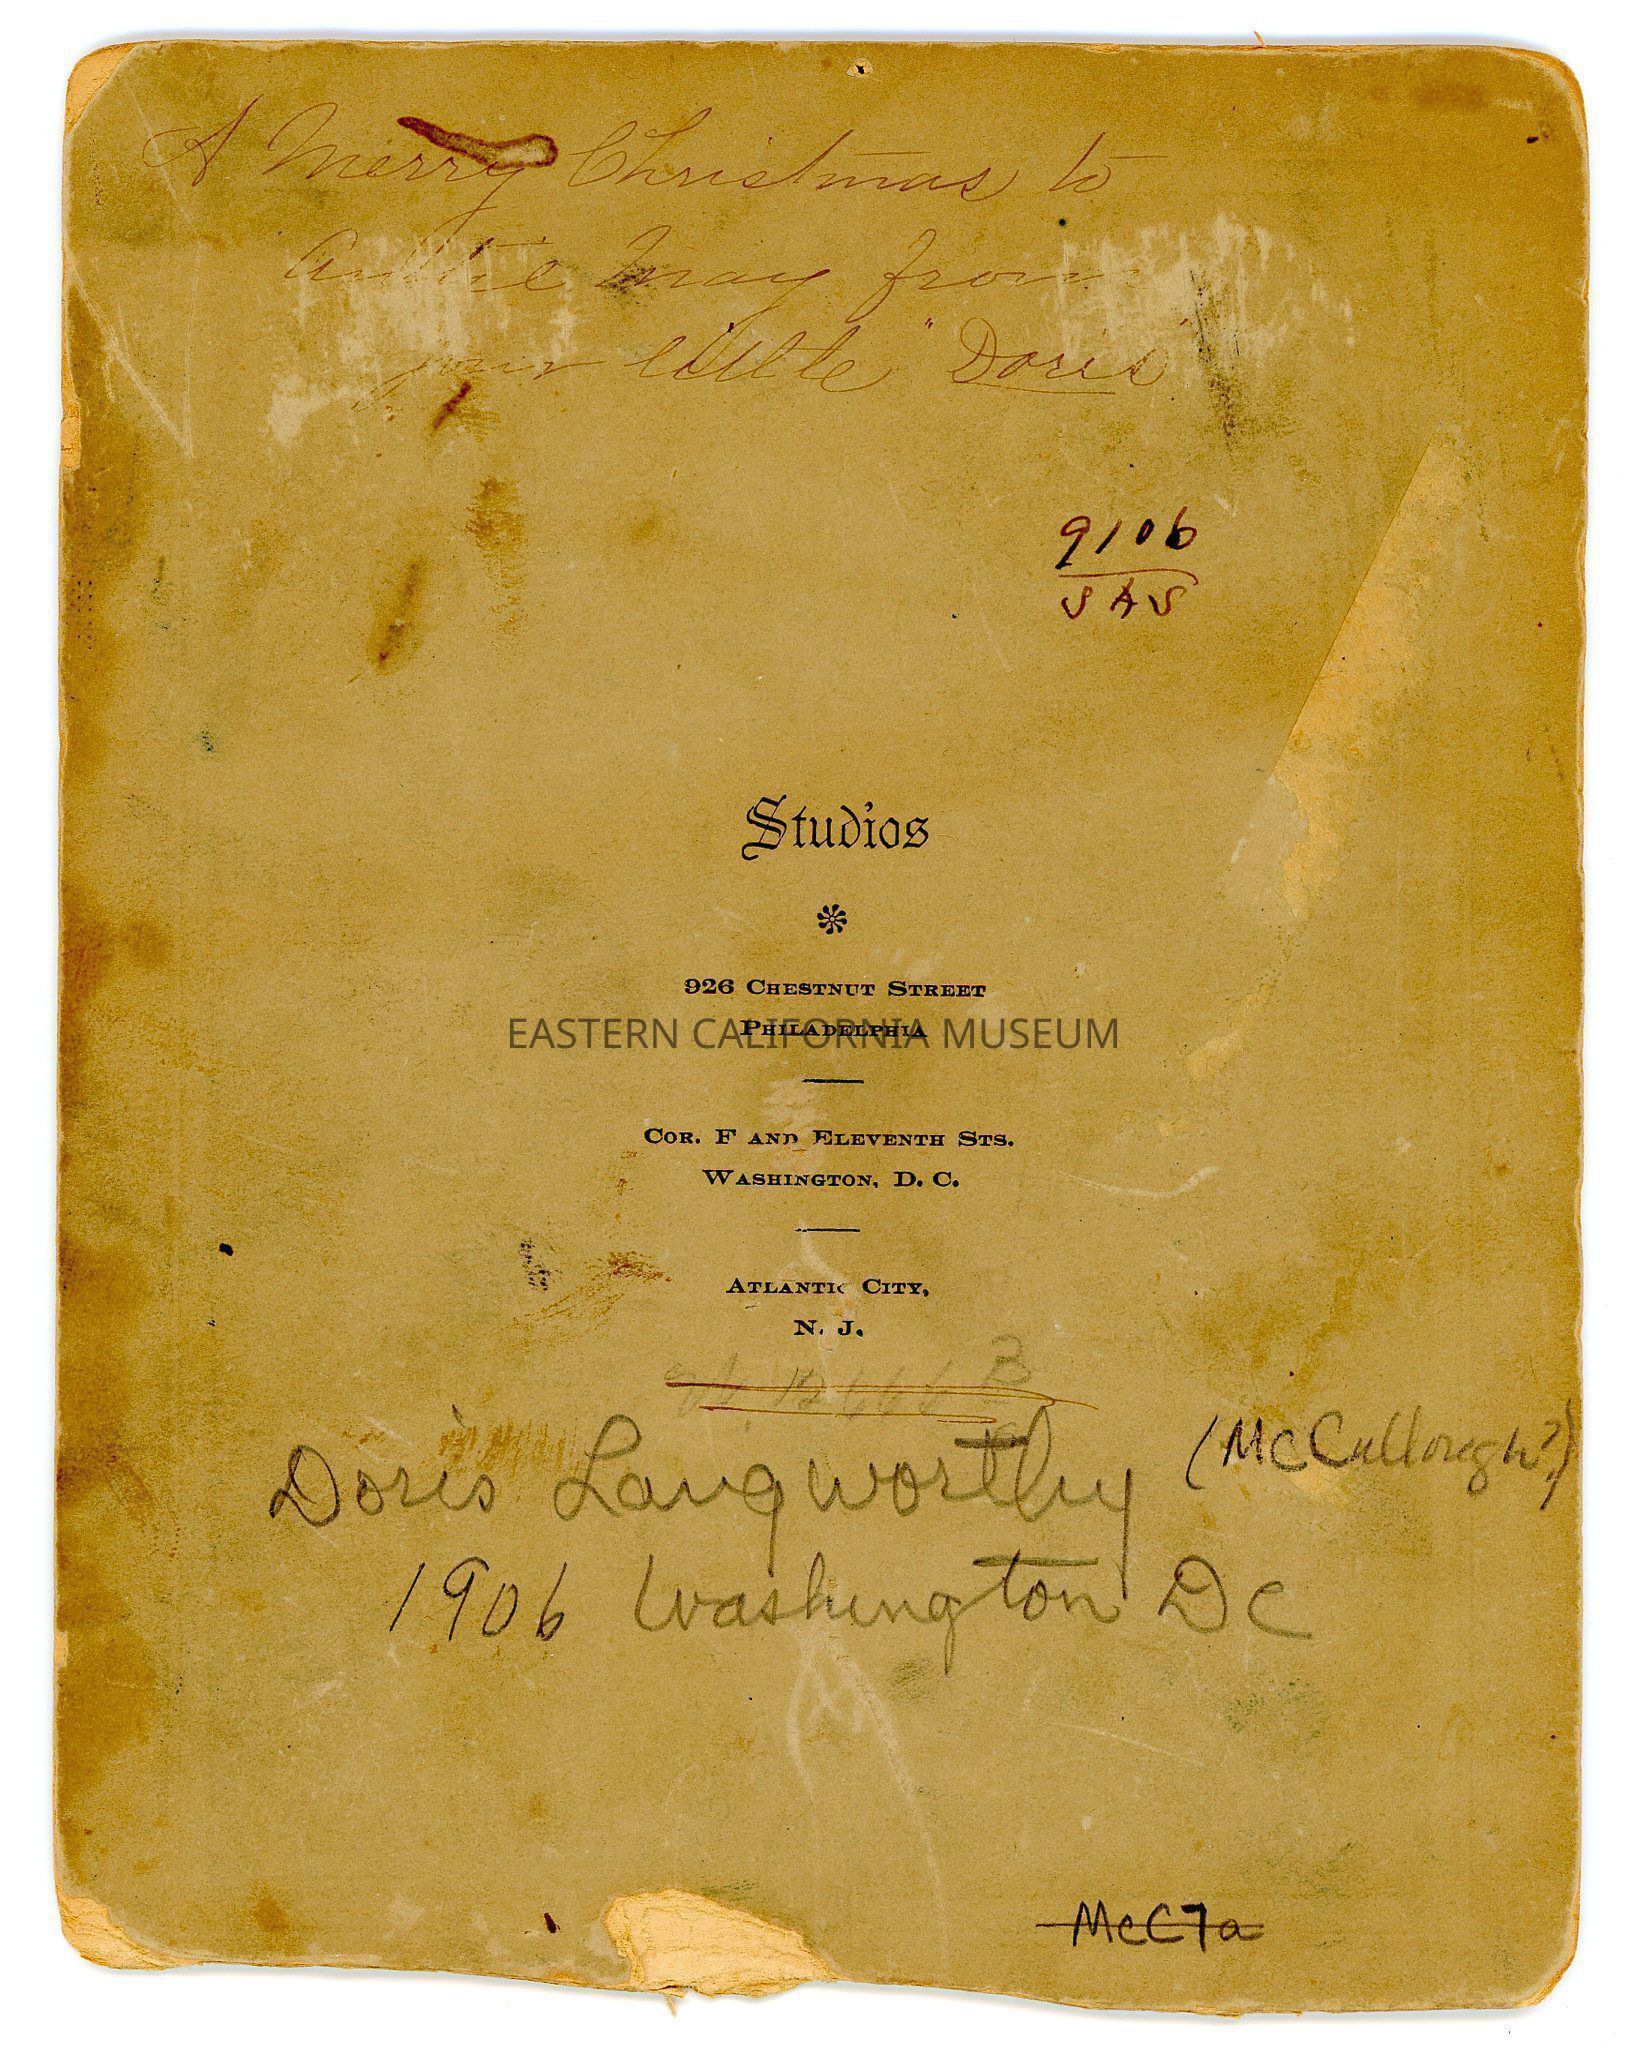 A Merry Christmas to
Auntie May from
your little "Doris"
9106
SAS
Studios
926 Chestnut Street
Philadelphia
EASTERN CALIFORNIA MUSEUM
Cor. F and Eleventh Sts.
Washington, D. C.
Atlantic City,
N. J.
Doris Langworthy (McCullough?)
1906 Washington DC
McC7a